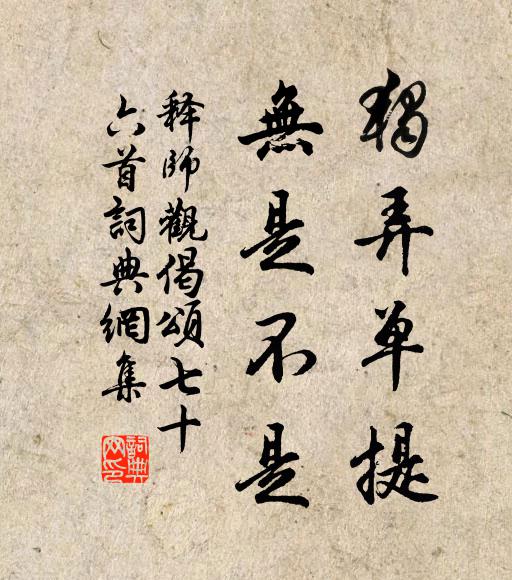 獨弄单提
無是不是
释師觀偈頌七十
六首詞典網集
詞典網印